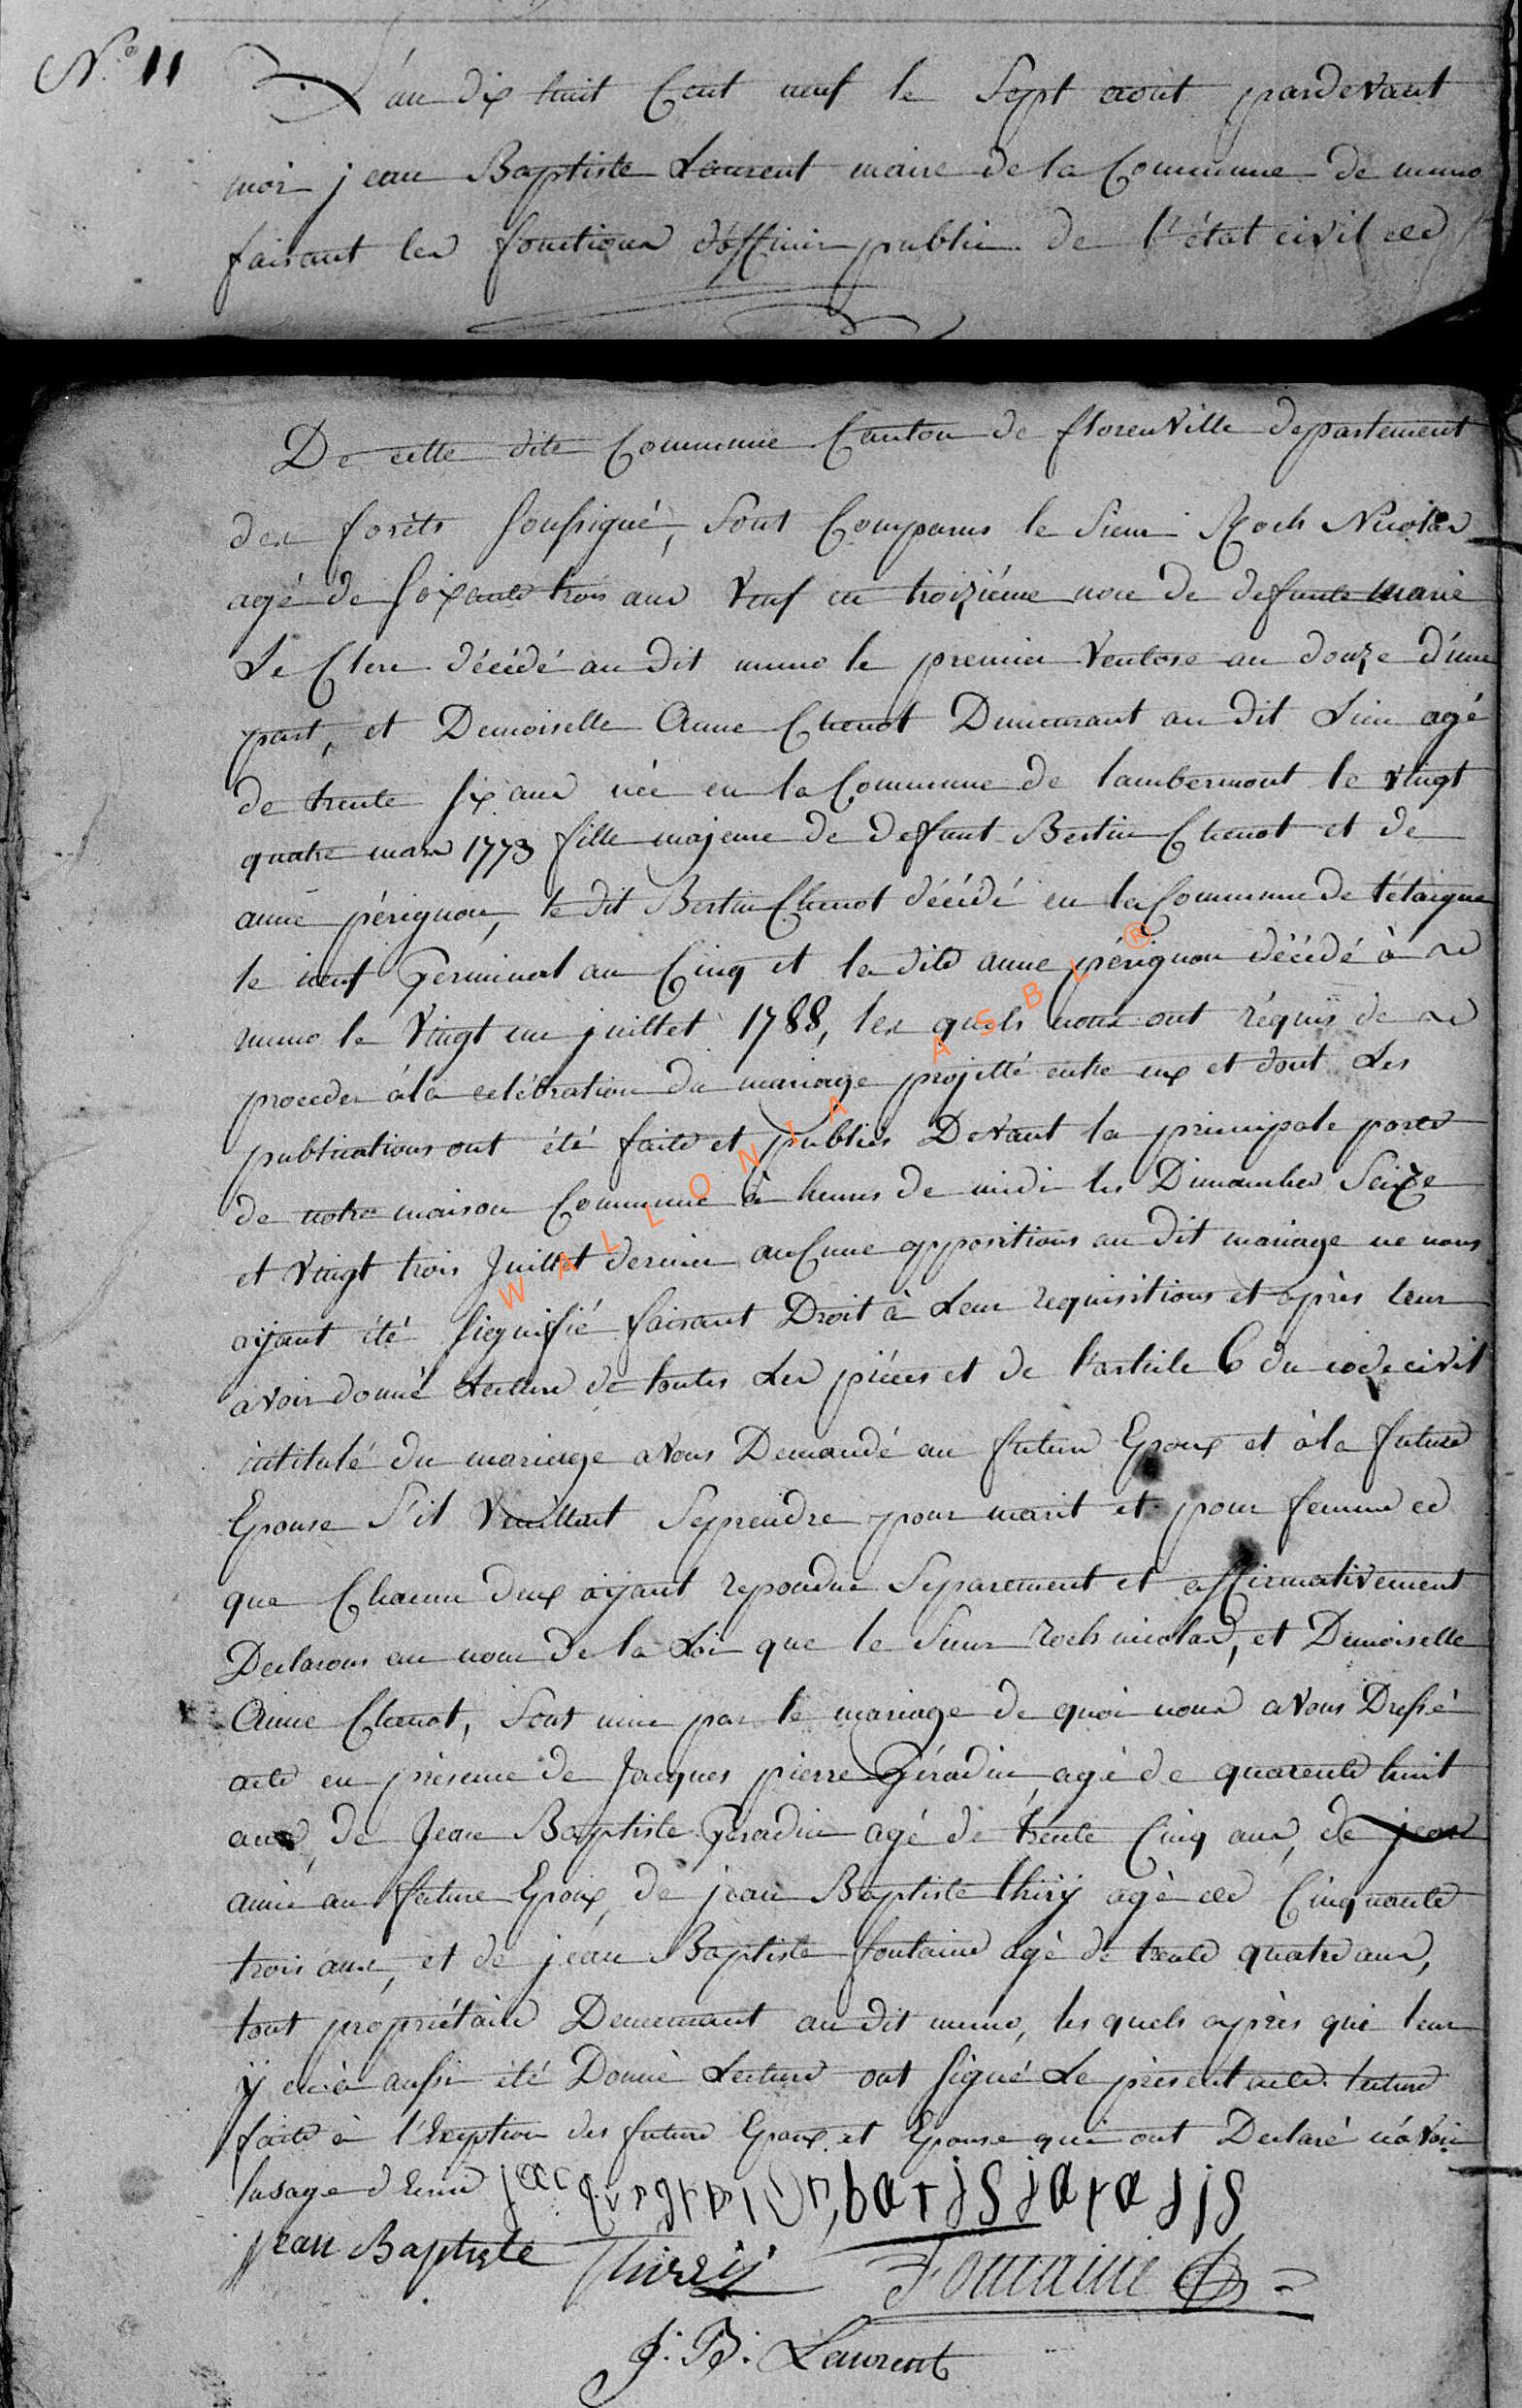 N.º 11
L'an dix huit Cent neuf le Sept aout pardevant
moi jean Baptiste Laurent maire de la Commune de muno
faisant les fonctions d'officier public de l'état civil
De cette dite Commune Canton de florenville departement
des forêts soussigné, sont Comparus le Sieur Roch Nicolas
agé de soixante trois ans veuf en troiziéme noce de defunte marie
Le Clere décédé au dit muno le premier ventose an douze d'une
part, et Demoiselle Anne Chenot Demeurant au dit Lieu agé
de trente six ans née en la Commune de lambermont le vingt
quatre mars 1773 fille majeure de defunt Bertin Chenot et de
anne pérignon, le dit Bertin Chenot décédé en la Commune de tétaigne
le neuf Germinal an Cinq et la dite anne pérignon décédé à
muno le vingt un juillet 1788, les quels nous ont réquis de
proceder à la celébration du mariage projetté entre eux et dont Les
publications ont été faite et publiés Devant la principale porte
de notre maison Commune à heures de midi les Dimanches Seize
et vingt trois Juillet dernier aucune oppositions au dit mariage ne nous
aÿant été signifié faisant Droit à Leur requisitions et après leur
avoir donné Lecture de toutes Les piéces et de l'article 6 du code civil
intitulé du mariage avons Demandé au futur Epoux et à la future
Epouse S'il veuillent Se prendre pour marit et pour femme
que Chacun deux aÿant repondue Separement et affirmativement
Declarons au nom de la Loi que le Sieur roch nicolas, et Demoiselle
Anne Chenot, sont unie par le mariage de quoi nous avons Dressé
acte en présence de Jacques pierre Géradin agé de quarente huit
ans, de Jean Baptiste Geradin agé de trente Cinq ans, de jean
amie au future Epoux, de jean Baptiste thirÿ agé de Cinquante
trois ans, et de jean Baptiste fontaine agé de trente quatre ans,
tout propriétaire Demeurant au dit muno, les quels après qui leur
ÿ en à aussi été Donné Lecture ont signé Le présent acte lecture
faite à l'Exeption des future Epoux et Epouse qui ont Declaré n'avoir
lusage
jean Baptiste Thirrij Fontaine
J: B: Laurent
WALLONIA ASBL ®